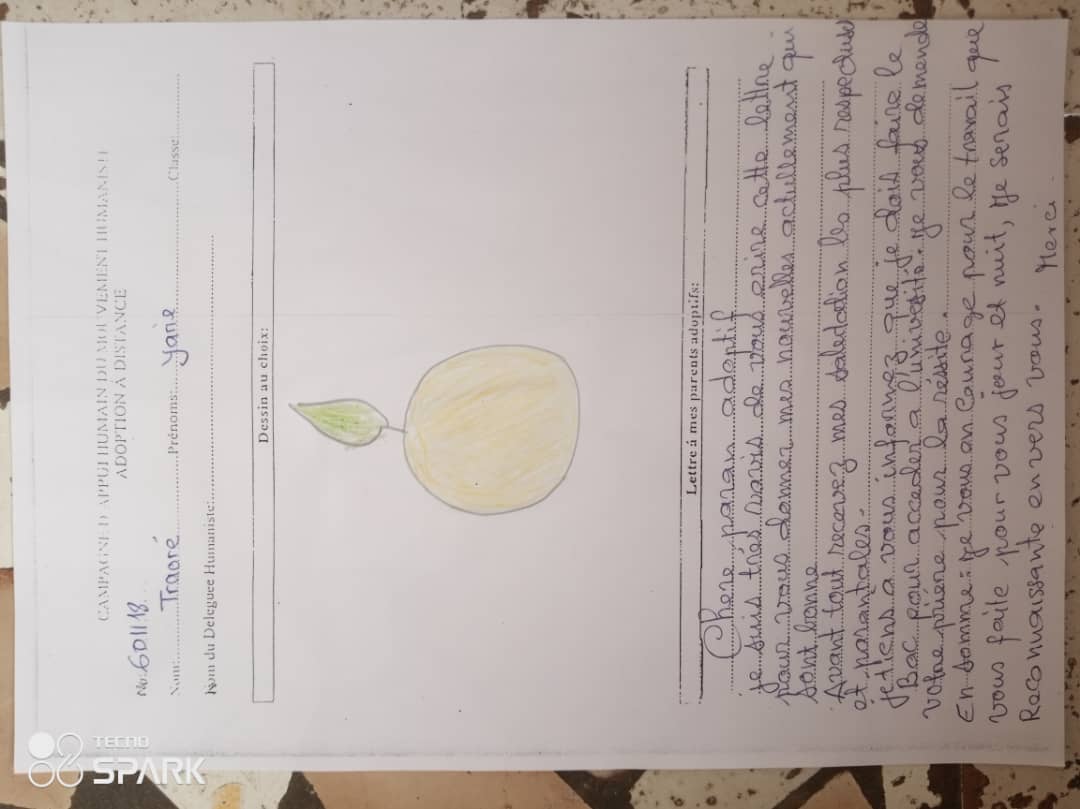 CAMPAGNE D'APPUI HUMAIN DU MOUVEMENT HUMANISTE
ADOPTION À DISTANCE
No: 601118
Nom: Traoré Prénoms: yarie Classe:
Nom du Deleguee Humaniste:
Dessin au choix:
Lettre á mes parents adoptifs:
Chere paran adoptif
je suis trés ravis de vous écrire cette lettre
pour vous donner mes nouvelles actullement qui
sont bonne
Avant tout recevez mes salutation les plus respectuse
et parantales.
Je tiens a vous informez que je dois faire le
Bac pour acceder a l'univesité. je vous demende
votre priere pour la réssite.
En somme je vous en Courage pour le travail que
vous faile pour vous jour et nuit, je serais
Reconnaissante en vers vous. Merci
TECNO
SPARK